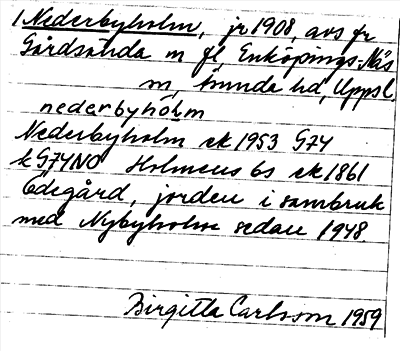 1 Nederbyholm, jr 1908, avs fr
Gårdsända m fl, Enköpings-Näs
sn, Trunda hd, Uppsl.
nederbyhòlm
Nederbyholm ek 1953 G74
k G74NO Holmens bs ek 1861
Ödegård, jorden i sambruk
med Nybyholm sedan 1948.
Birgitta Carlsson 1959